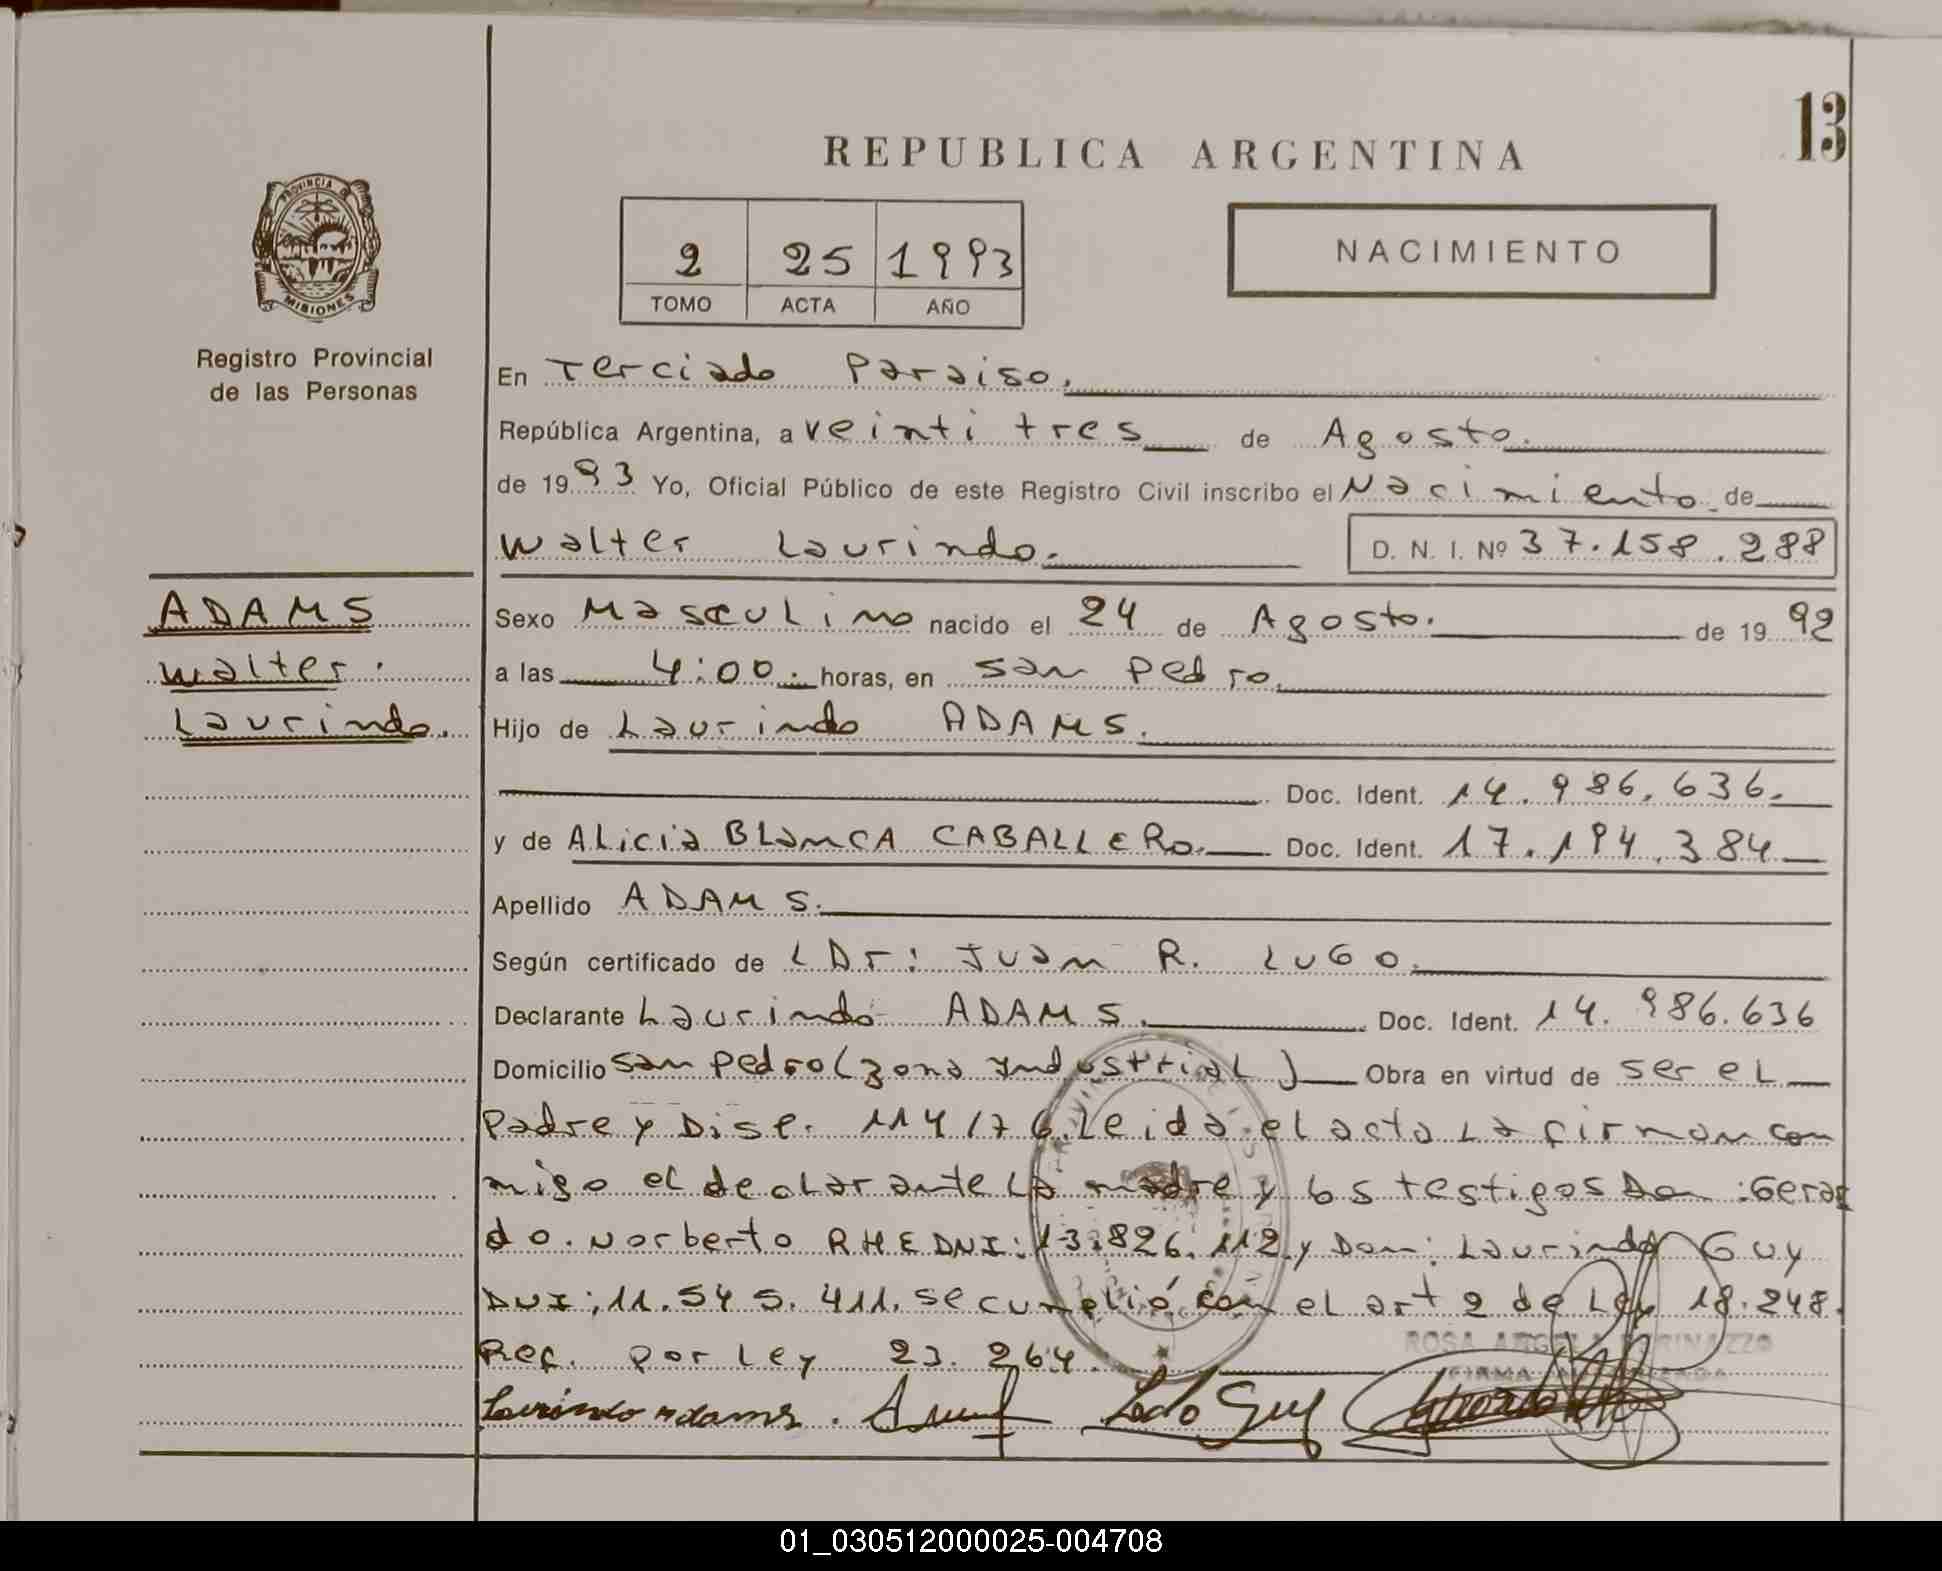 13
REPUBLICA ARGENTINA
PROVINCIA DE
MISIONES
Registro Provincial
de las Personas
2 25 1993
TOMO ACTA AÑO
NACIMIENTO
En Terciado Paraiso.
República Argentina, a veinti tres de Agosto.
de 1993 Yo, Oficial Público de este Registro Civil inscribo el Nacimiento de
Walter Laurindo. D. N. I. Nº 37.158.288
ADAMS
Walter.
Laurindo.
Sexo Masculino nacido el 24 de Agosto. de 1992
a las 4:00. horas, en san Pedro.
Hijo de Laurindo ADAMS.
Doc. Ident. 14.986.636.
y de ALicia BLanCA CABALLERo. Doc. Ident. 17.194.384
Apellido ADAMS.
Según certificado de LDr: Juan R. LUGO.
Declarante Laurindo ADAMS. Doc. Ident. 14.986.636
Domicilio san Pedro (zona Industrial) Obra en virtud de ser el
Padre y Disp. 114/76. Leida el acta La firman con
migo el declarante La madre y los testigos Don: Gerar
do. Norberto RHE DNI: 13.826.112 y Don: Laurindo Guy
DNI: 11.545.411. se cumplió con el art 2 de Ley 18.248.
Ref. por Ley 23.264.
ROSA
FIRMA
Laurindo Adams.
01_030512000025-004708